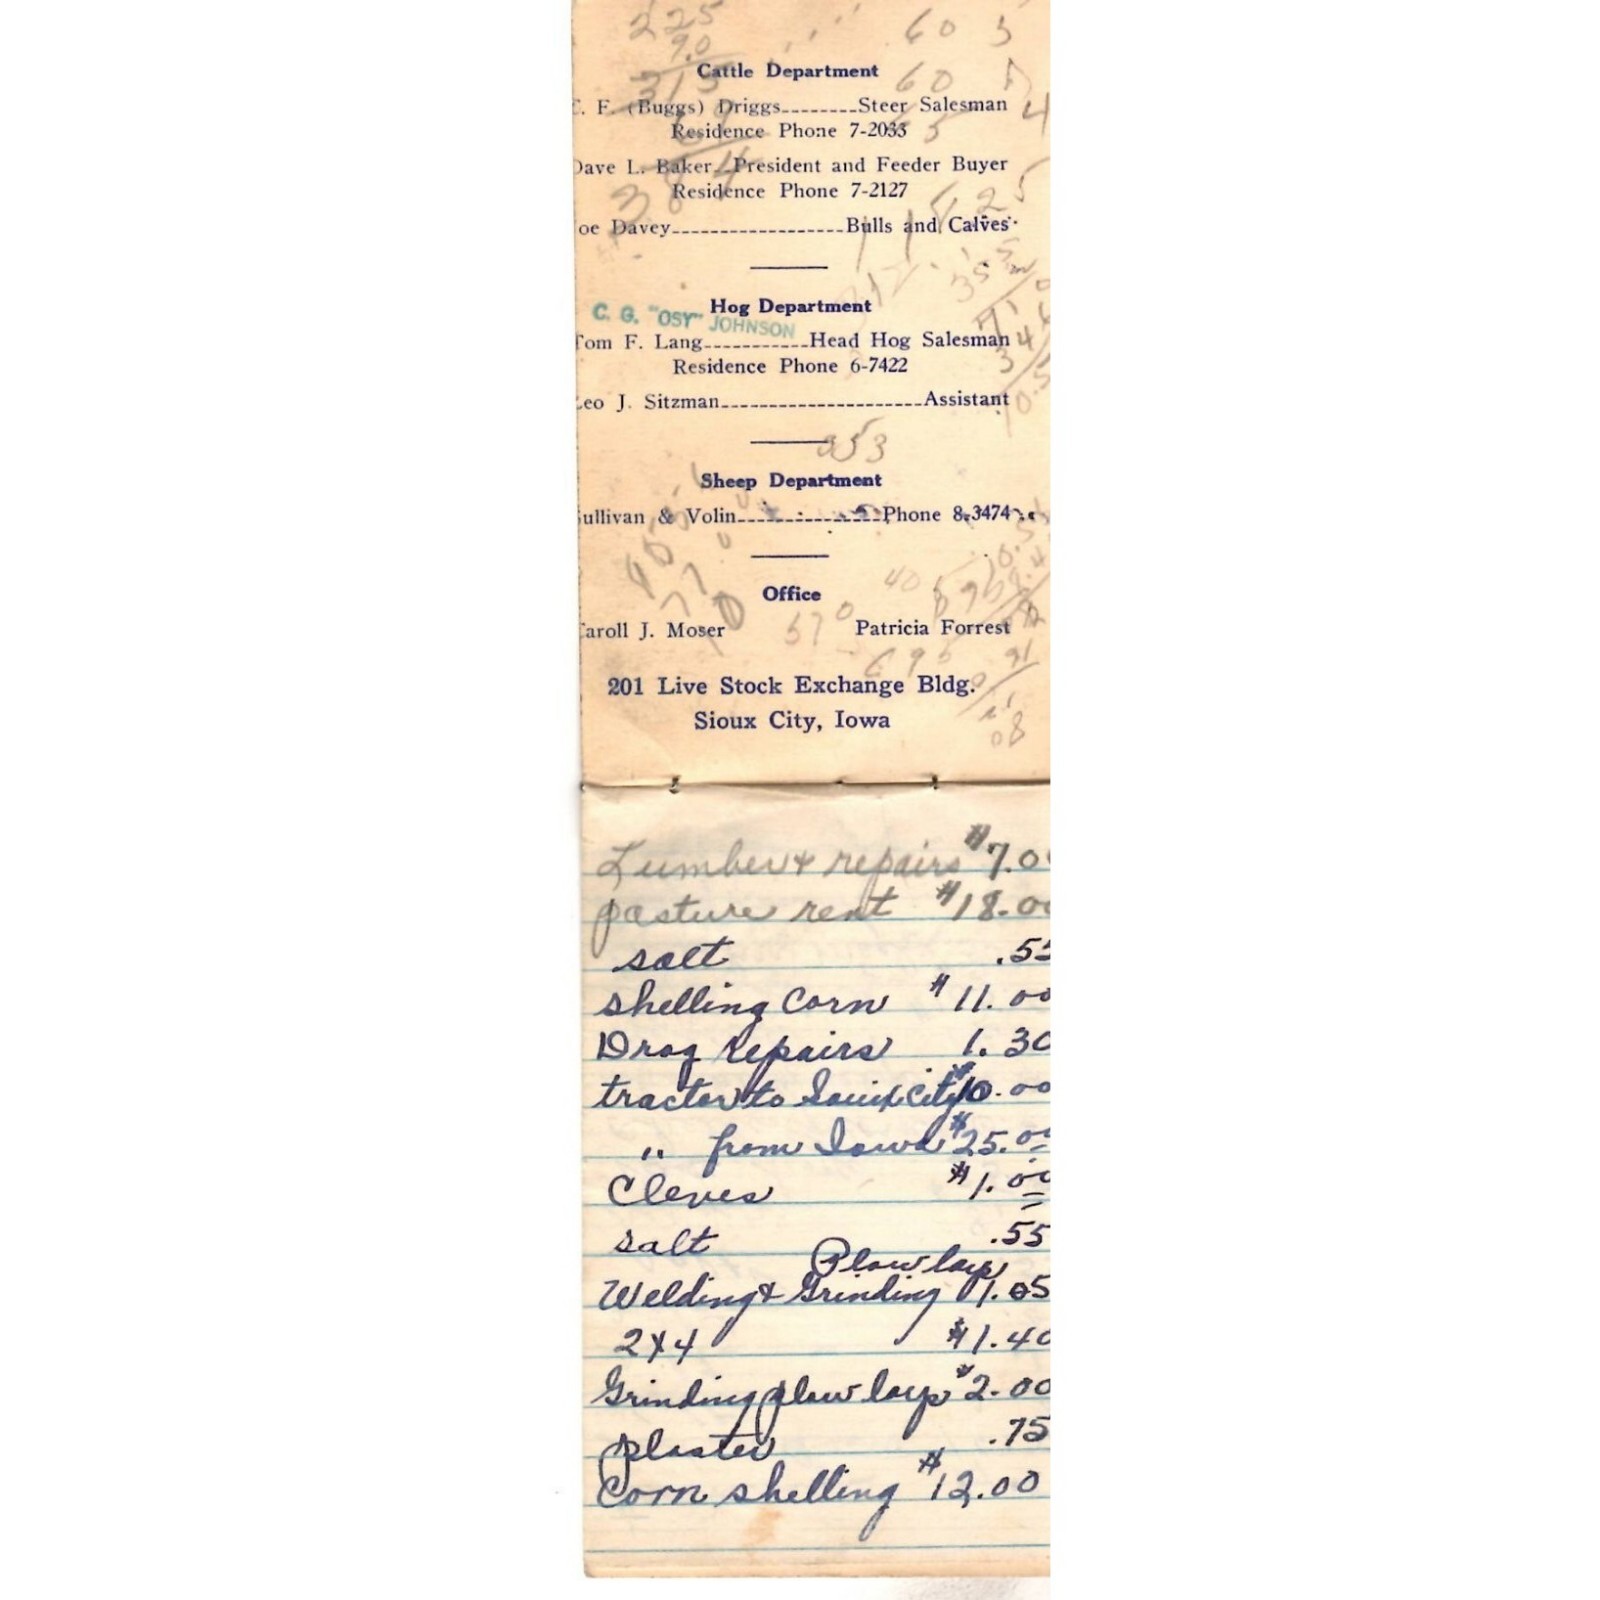 225 60 5
90
Cattle Department
315 60
E. F. (Buggs) Driggs--------Steer Salesman 4
69
Residence Phone 7-2033 5
Dave L. Baker--President and Feeder Buyer
384
Residence Phone 7-2127
25
oe Davey------------------Bulls and Calves
Hog Department
C. G. "OSY" JOHNSON
Tom F. Lang-----------Head Hog Salesman
Residence Phone 6-7422
Leo J. Sitzman---------------------Assistant
353
Sheep Department
Sullivan & Volin---------------Phone 8-3474
Office
40
570
Caroll J. Moser Patricia Forrest
695 91
201 Live Stock Exchange Bldg.
Sioux City, Iowa
08
Lumber & repairs $7.0
pasture rent $18.00
salt .55
shelling corn $11.00
Drag repairs 1.30
tractor to Souix city $10.00
" from Iowa $25.00
Cleves $1.00
salt .55
Plow lays
Welding & Grinding 1.05
2x4 $1.40
Grinding plow lays $2.00
plaster .75
Corn shelling $12.00